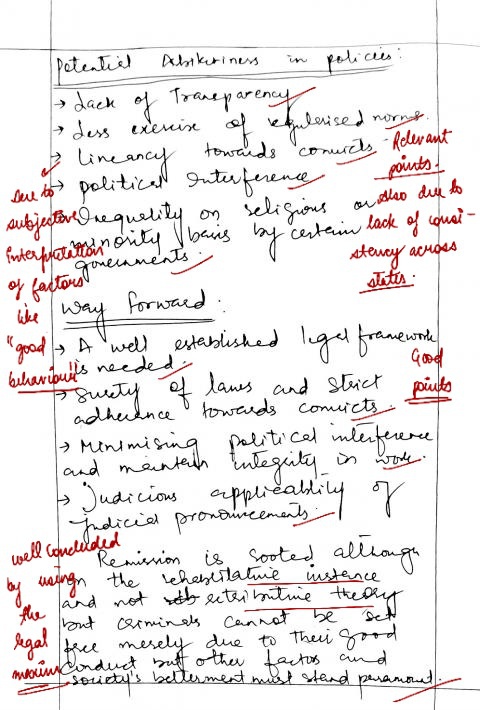 Potential Abikiriness in policies:
→ Lack of Transparency
→ Less exercise of regulerised norms.
→ Lineancy towards convicts.
→ political Interference
→ Inequality on religious or
minority basis by certain
governments.
Relevant
points.
Due to
subjective
interpretation
of factors
like
"good
behaviour"
also due to
lack of consi-
stency across
states.
Way Forward:
→ A well established legal framework
is needed.
→ Surety of laws and strict
adherance towards convicts.
Good
points
→ Minimising political interference
and maintain integrity in work.
→ Judicious applicablity of
judicial pronouncements.
Remission is sooted although
in the rehabilitative instance
and not retributive theory
but criminals cannot be set
free merely due to their good
conduct but other factors and
society's betterment must stand paramount.
well concluded
by using
the
legal
maxim